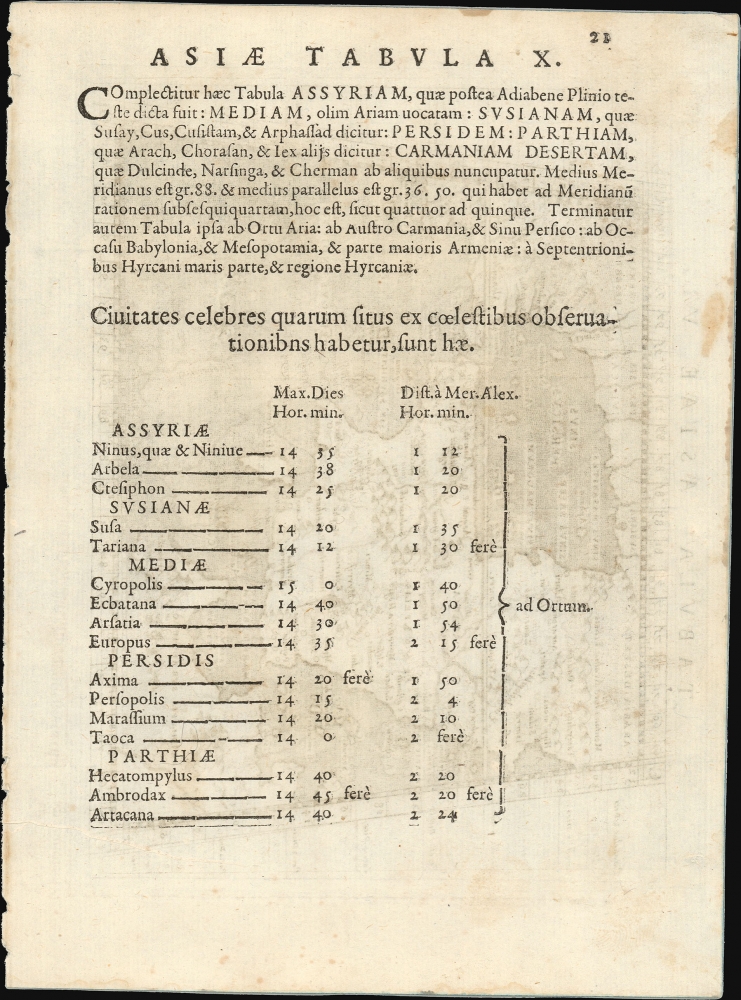 21
ASIÆ TABVLA X.
COmplectitur hæc Tabula ASSYRIAM, quæ poſtea Adiabene Plinio te-
ſte dicta fuit: MEDIAM, olim Ariam uocatam: SVSIANAM, quæ
Suſay,Cus,Cuſiſtam,& Arphaſſad dicitur: PERSIDEM: PARTHIAM,
quæ Arach, Choraſan, & Iex alijs dicitur: CARMANIAM DESERTAM,
quæ Dulcinde, Narſinga, & Cherman ab aliquibus nuncupatur. Medius Me-
ridianus eſt gr.88. & medius parallelus eſt gr.36. 50. qui habet ad Meridianū
rationem ſubſeſquiquartam,hoc eſt, ſicut quattuor ad quinque. Terminatur
autem Tabula ipſa ab Ortu Aria: ab Auſtro Carmania,& Sinu Perſico: ab Oc-
caſu Babylonia,& Meſopotamia, & parte maioris Armeniæ: à Septentrioni-
bus Hyrcani maris parte,& regione Hyrcaniæ.
Ciuitates celebres quarum ſitus ex cœleſtibus obſerua-
tionibns habetur,ſunt hæ.
Max.Dies Diſt.à Mer.Alex.
Hor. min. Hor. min.
ASSYRIÆ
Ninus,quæ & Niniue 14 35 1 12
Arbela 14 38 1 20
Cteſiphon 14 25 1 20
SVSIANÆ
Suſa 14 20 1 35
Tariana 14 12 1 30 ferè
MEDIÆ
Cyropolis 15 0 1 40
Ecbatana 14 40 1 50 ad Ortum.
Arſatia 14 30 1 54
Europus 14 35 2 15 ferè
PERSIDIS
Axima 14 20 ferè 1 50
Perſopolis 14 15 2 4
Maraſſium 14 20 2 10
Taoca 14 0 2 ferè
PARTHIÆ
Hecatompylus 14 40 2 20
Ambrodax 14 45 ferè 2 20 ferè
Artacana 14 40 2 24